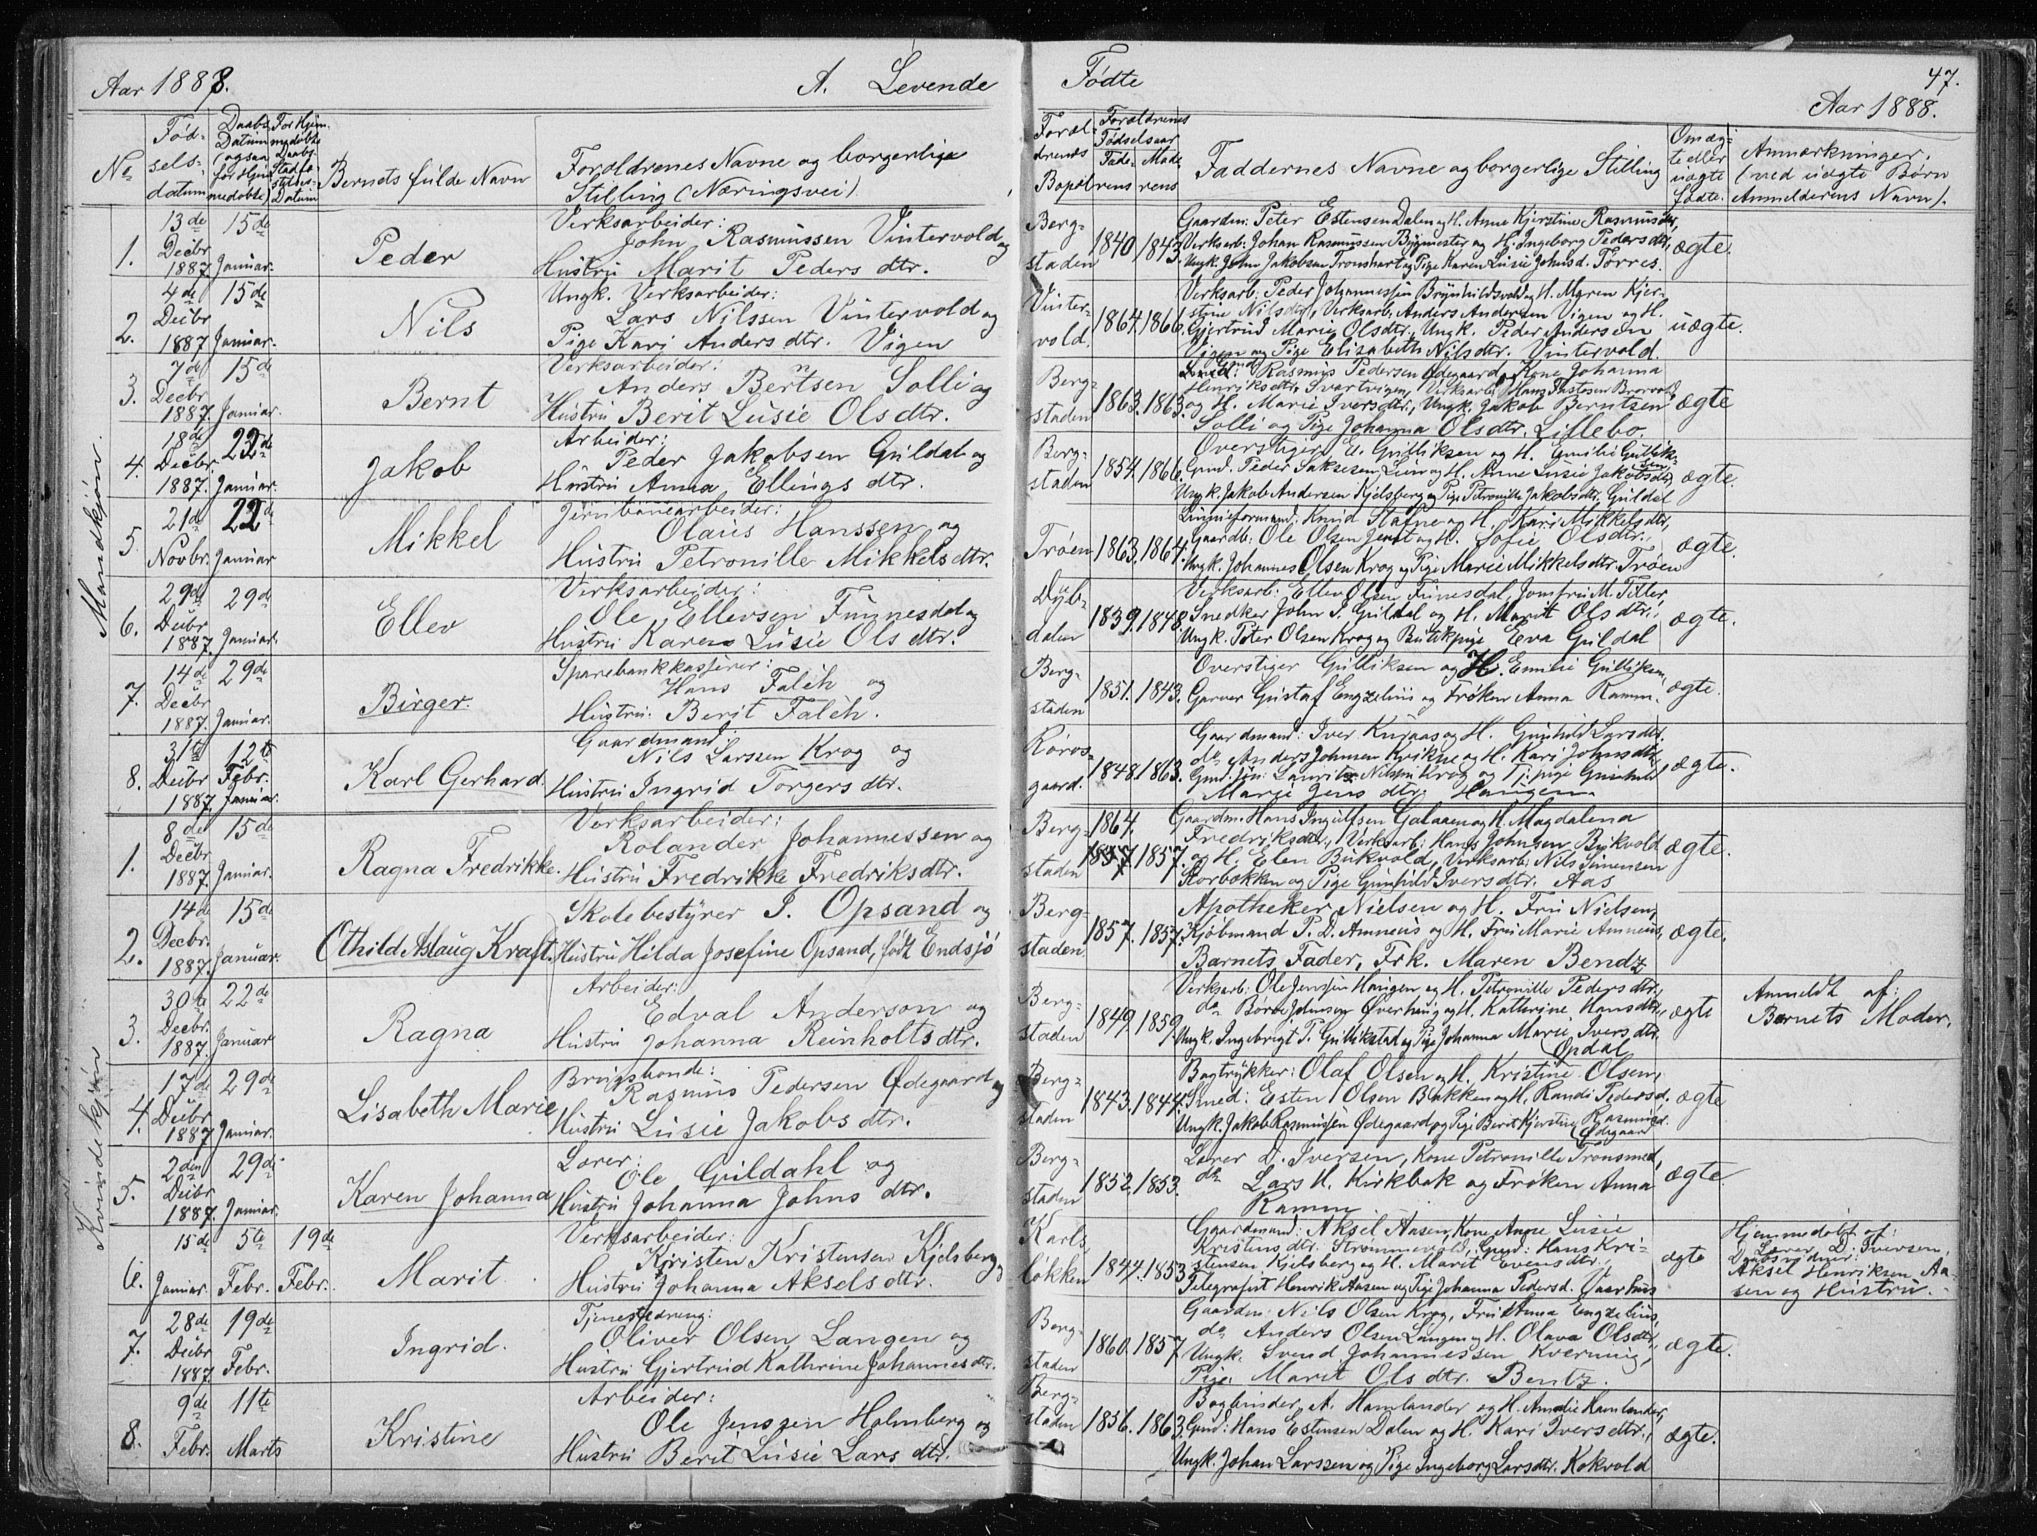 Aar 1888.
A. Levende
Fødte
47.
Aar 1888.
No
Fødselsdatum
Daabs Datum (ogsaa for Hjemmedøbte)
For Hjemmedøbte Daabs Stadfæstelses-Datum
Barnets fulde Navn
Forældrenes Navne og borgerlige
Stilling (Næringsvei)
Forældrenes Bopæl
Forældrenes Fødselsaar
Faderens
Moderens
Faddernes Navne og borgerlige Stilling
Om ægte eller uægte født.
Anmærkninger.
(ved uægte Børn
Anmelderens Navn).
Mandkjøn.
1.
13de Decbr 1887
15de Januar.
Peder
Verksarbeider:
John Rasmussen Vintervold og
Hustru Marit Peders dtr.
Bergstaden
1840
1843.
Gaardm: Peter Estensen Dalen og H. Anne Kjerstine Rasmusdtr,
Verksarb: Johan Rasmussen Bygmester og H. Ingeborg Pedersdtr,
Ungk. John Jakobsen Tronshart og Pige Karen Lusie Johnsd. Torres.
ægte.
2.
4de Decbr 1887
15de Januar.
Nils
Ungk. Verksarbeider:
Lars Nilssen Vintervold og
Pige Kari Anders dtr. Vigen
Vintervold.
1864.
1866.
Verksarb: Peder Johannessen Brynhildsvold og H. Maren Kjerstine
Nilsdtr, Verksarb. Anders Andersen Vigen og H.
Gjertrud Marie Olsdtr., Ungk. Peder Andersen
Vigen og Pige Elisabeth Nilsdtr. Vintervold.
uægte.
3.
7de Decbr 1887.
15de Januar.
Bernt
Verksarbeider:
Anders Berntsen Solli og
Hustru Berit Lusie Ols dtr.
Bergstaden
1863.
1863.
Rasmus Pedersen Ødegaard, Kone Johanna
Henriksdtr. Svartvigen, Verksarb: Hans
og H. Marie Iversdtr., Ungk. Jakob Berntsen
Solli og Pige Johanna Olsdtr. Lillebo.
ægte
4.
18de Decbr. 1887.
22de Januar.
Jakob
Arbeider:
Peder Jakobsen Guldal og
Hustru Anna Ellings dtr.
Bergstaden
1854.
1866.
Overstiger E. Gulliksen og H. Emilie Gulliksen
Gmd. Peder Saksesen Lien og H. Anne Lusie Jakobsdtr,
Ungk. Jakob Andersen Kjelsberg og Pige Petronille Jakobsdtr. Guldal
ægte.
5
21de Novbr.
22de Januar
Mikkel
Jernbanearbeider:
Olaus Hanssen og
Hustru Petronille Mikkelsdtr.
Trøen
1863.
1864.
Linieformand: Knud Stafne og H. Kari Mikkelsdtr,
Gaardb: Ole Olsen Jensvt og H. Sofie Olsdtr.,
Ungk. Johannes Olsen Krog og Pige Marie Mikkelsdtr. Trøen
ægte.
6.
29de Decbr 1887.
29de Januar.
Ellev
Verksarbeider:
Ole Ellevsen Funnesdal og
Hustru Karen Lusie Ols dtr.
Dybdalen
1839.
1848.
Verksarb: Ellev Olsen Funesdal, Jomfru M. Feller,
Snedker John J. Guldal og H. Marit Olsdtr.,
Ungk. Peter Olsen Krog og Butikpige Eva Guldal
ægte.
7.
14de Decbr 1887.
29de Januar.
Birger.
Sparebankkasserer:
Hans Falch og
Hustru: Berit Falch.
Bergstaden
1851.
1843.
Overstiger Gulliksen og H. Emilie Gulliksen,
Garver Gustaf Engzelius og Frøken Anna Ramm.
ægte.
8.
31te Decbr 1887
12te Febr. Januar.
Karl Gerhard.
Gaardmand:
Nils Larssen Krog og
Hustru Ingrid Torgers dtr.
Rørosgaard.
1848.
1863.
Gaardmand: Iver Kuraas og H. Gunhild Larsdtr,
do Anders Johnsen Kvikne og H. Kari Johnsdtr,
Gmd. søn: Laurits Nilsen Krog og Tj.pige Gunhild
Marie Jens dtr. Haugen.
ægte.
Kvindekjøn
1.
8de Decbr 1887.
15de Januar.
Ragna Fredrikke.
Verksarbeider:
Rolander Johannessen og
Hustru Fredrikke Fredriksdtr.
Bergstaden
1864.
1857
1857.
Gaardm. Hans Ingulfsen Galaaen og H. Magdalena
Fredriksdtr., Verksarb: Hans Johnsen Bukvold
og H. Elen Bukvold, Verksarb: Nils Simensen
Storbækken og Pige Gunhild Iversdtr. Aas
ægte.
2.
14de Decbr. 1887.
15de Januar.
Othilde Aslaug Kraft.
Skolebestyrer J. Opsand og
Hustru Hilda Josefine Opsand, født Endsjø
Bergstaden
1857.
1857.
Apotheker Nielsen og H. Fru Nielsen,
Kjøbmand P. D. Amneus og H. Fru Marie Amneus,
Barnets Fader, Frk. Maren Bendz
ægte.
3.
30te Decbr. 1887
22de Januar
Ragna
Arbeider:
Edval Anderson og
Hustru Johanna Reinholts dtr.
Bergstaden
1849.
1859.
Verksarb: Ole Jenssen Haugen og H. Petronille Pedersdtr.,
do Børre Johnsen Øverhaug og H. Kathrine Hansdtr,
Ungk. Ingebrigt T. Gullikstad og Pige Johanna Marie Iversdtr.
Opdal
ægte
Anmeldt af:
Barnets Moder.
4.
17de Decbr 1887
29de Januar.
Lisabeth Marie
Brugsbonde:
Rasmus Pedersen Ødegaard og
Hustru Lusie Jakobs dtr.
Bergstaden
1843.
1844.
Bogtrykker: Olaf Olsen og H. Kristine Olsen,
Smed: Esten Olsen Bakken og H. Randi Pedersd.
Ungk. Jakob Rasmussen Ødegaard og Pige Berit Kjerstine Rasmusd.
Ødegaard
ægte
5.
2den Decbr 1887.
29de Januar.
Karen Johanna
Lærer:
Ole Guldahl og
Hustru Johanna Johns dtr.
Bergstaden
1852.
1853.
Lærer D. Iversen, Kone Petronille Tronsmed,
do Lars H. Kirkbak og Frøken Anna
Ramm
ægte.
6.
15de Januar.
5te Febr.
19de Febr.
Marit
Verksarbeider:
Kristen Kristensen Kjelsberg og
Hustru Johanna Aksels dtr.
Karlsløkken
1844.
1853
Gaardmand: Aksel Aasen, Kone Anne Lusie
Kristens dtr. Strømmevold, Gmd: Hans Kristensen
Kjelsberg og H. Marit Evensdtr.,
Telegrafist Henrik Aasen og Pige Johanna Pedersd. Aarhus
ægte
Hjemmedøbt af:
Lærer D. Iversen.
Daabsvidner:
Aksel Henriksen Aasen
og Hustru.
7.
28de Decbr 1887
19de Febr.
Ingrid.
Tjenestedreng:
Oliver Olsen Langen og
Hustru Gjertrud Kathrine Johannes dtr.
Bergstaden
1860.
1857
Gaardm: Nils Olsen Krog, Fru Anna Engzelius,
do Anders Olsen Langen og H. Olava Olsdtr,
Ungk. Svend Johannessen Kverning,
Pige: Marit Olsdtr. Bentz.
ægte.
8.
9de Febr.
11te Marts
Kristine
Arbeider:
Ole Jenssen Holmberg og
Hustru Berit Lusie Lars dtr.
Bergstaden
1856.
1863.
Bogbinder A. Hamlander og H. Amalie Hamlander,
Gmd: Hans Estensen Dalen og H. Kari Iversdtr.,
Ungk. Johan Larssen og Pige Ingeborg Larsdtr. Kokvold
ægte.